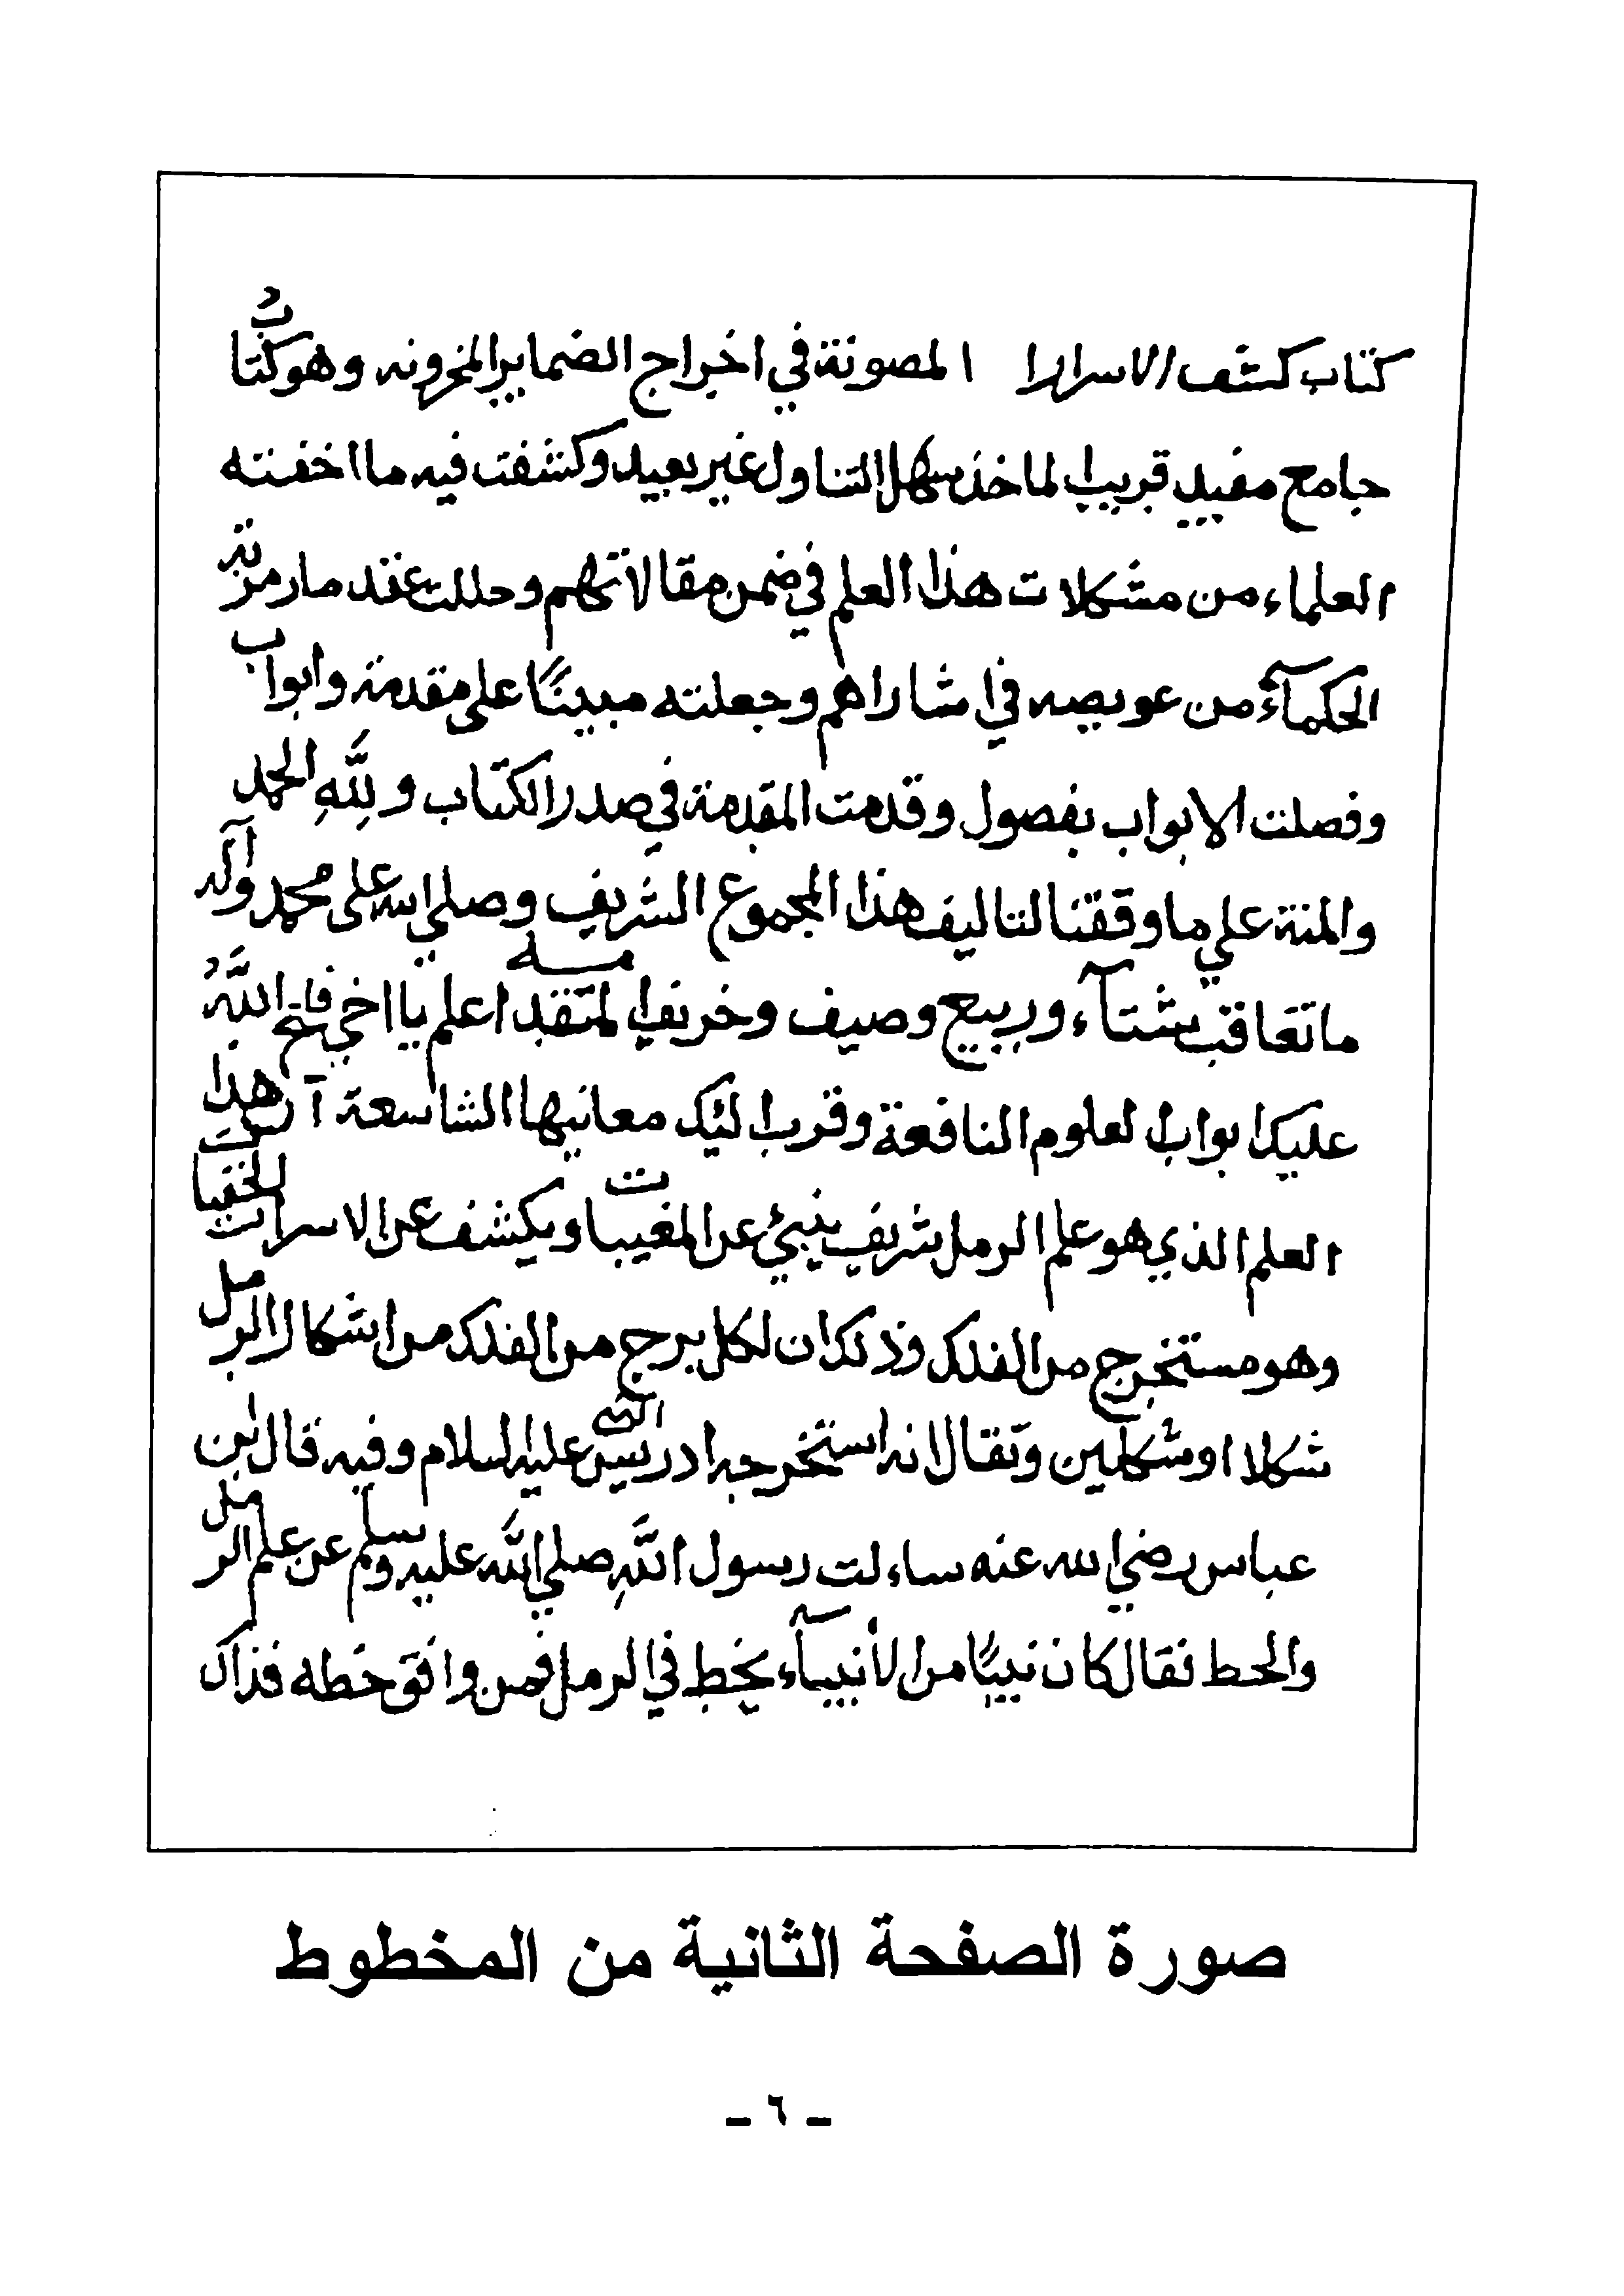 كتاب كشف الاسرار المصونة في اخراج الضماير المخزونه وهو كتابٌ
جامع مفيد قريب الماخذ سهل التناول غير بعيد وكشفت فيه ما اخفته
العلماء من مشكلات هذا العلم في ضمن مقالاتهم وحللت عقد ما رمزته
الحكمآء من عويصه في اشاراهم وجعلته مبينًا على مقدمة وابواب
وفصلت الابواب بفصول وقدمت المقدمة في صدر الكتاب وللهِ الحمد
والمنة علي ما وفقنا لتاليف هذا المجموع الشريف وصلي الله على محمد وآله
ما تعاقب شتآء وربيع وصيف وخريف المقدمه اعلم يا اخي فتح اللهُ
عليك ابواب العلوم النافعة وقرب اليك معانيها الشاسعة آن هذا
العلم الذي هو علم الرمل شريف ينبئ عن المغيبات ويكشف عن الاسرار الخفيات
وهو مستخرج من الفلك وذلك ان لكل برج من الفلك من اشكال الرمل
شكلا او شكلين ويقال انه استخرجه ادريس النبي عليه السلام وفيه قال ابن
عباس رضي الله عنه ساءلت رسول اللهِ صلي الله عليه وسلم عن علم الرمل
والخط فقال كان نبيًا من الأنبيآء يخط في الرمل فمن وافق خطه فذاك
صورة الصفحة الثانية من المخطوط
- ٦ -